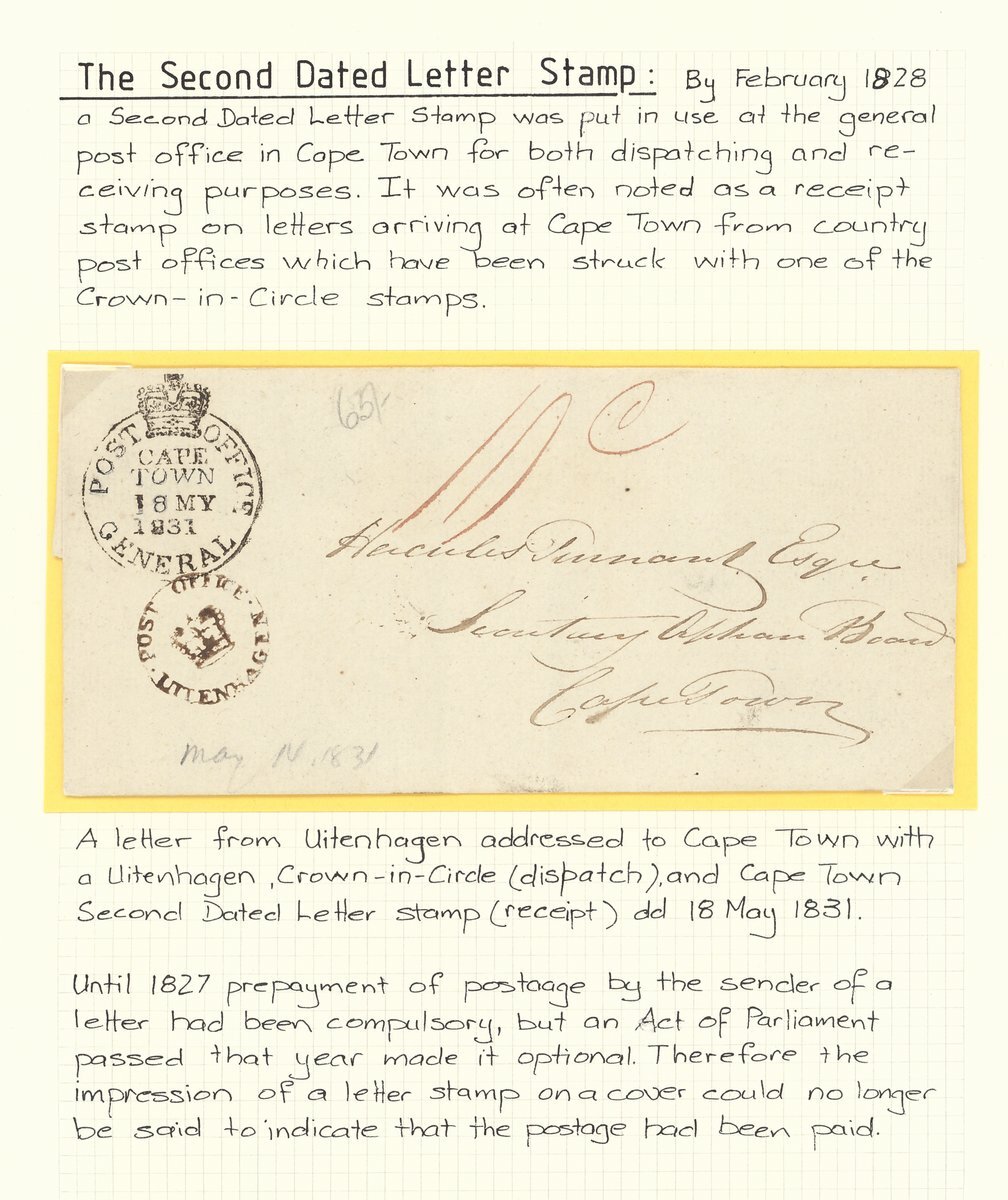 The Second Dated Letter Stamp: By February 1828
a Second Dated Letter Stamp was put in use at the general
post office in Cape Town for both dispatching and re-
ceiving purposes. It was often noted as a receipt
stamp on letters arriving at Cape Town from country
post offices which have been struck with one of the
Crown-in-Circle stamps.
POST OFFICE
CAPE
TOWN
18 MY
1831
GENERAL
65/-
Hercules Tennant Esqre
Secretary Orphan Board
Cape Town
POST OFFICE · UITENHAGE
May 14. 1831
A letter from Uitenhagen addressed to Cape Town with
a Uitenhagen, Crown-in-Circle (dispatch), and Cape Town
Second Dated Letter stamp (receipt) dd 18 May 1831.
Until 1827 prepayment of postaage by the sender of a
letter had been compulsory, but an Act of Parliament
passed that year made it optional. Therefore the
impression of a letter stamp on a cover could no longer
be said to indicate that the postage had been paid.